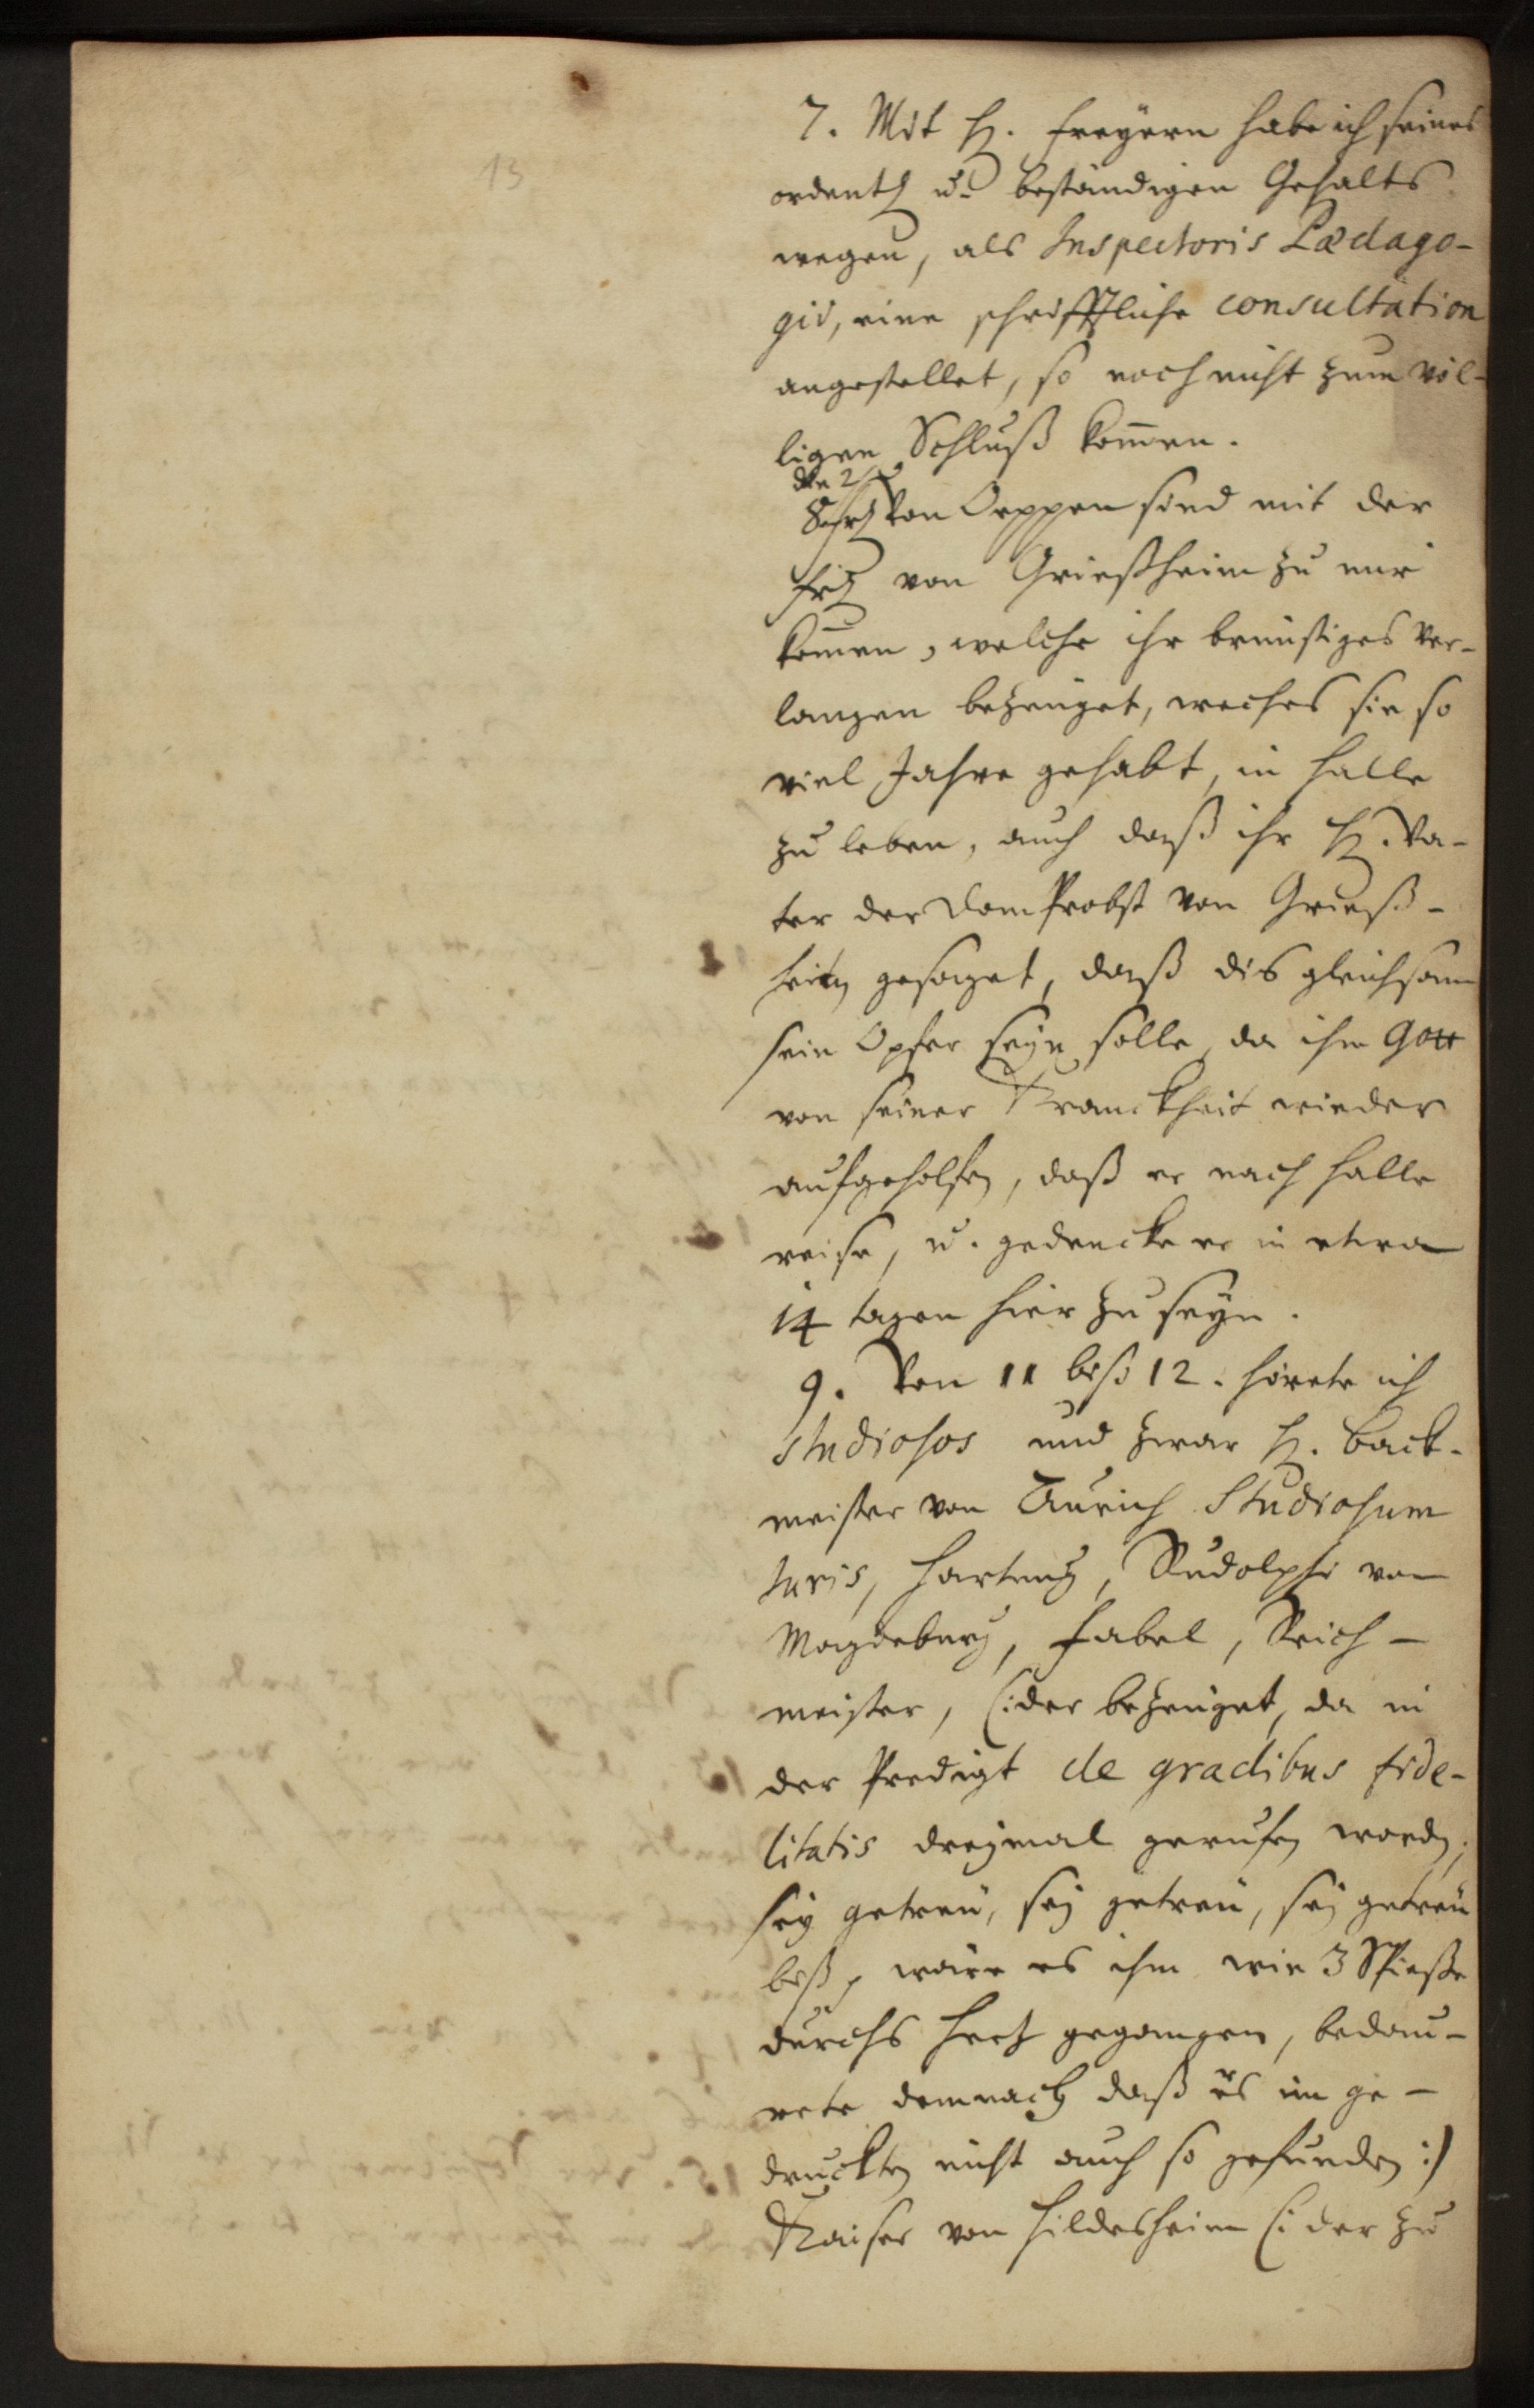 13
7. Mit H. Freyern habe ich seines
ordentl u. beständigen Gehalts
wegen, als Inspectoris Pædago-
gii, eine schrifftliche consultation
angestellet, so noch nicht zum völ-
ligen Schluß kom̅en.
die 2
8. Frl von Oeppen sind mit der
Frl von Grießheim zu mir
kom̅en, welche ihr brünstiges Ver-
langen bezeuget, weches sie so
viel Jahre gehabt, in Halle
zu leben, auch daß ihr H. Va-
ter der Dom Probst von Grieß-
heim gesaget, daß dis gleichsam
sein Opfer seyn solle, da ihm Gott
von seiner Kranckheit wieder
aufgeholfen, daß er nach Halle
reise, u. gedencke er in etwa
14 tagen hier zu seyn.
9. Von 11 biß 12. hörete ich
Studiosos und zwar H. Back-
meister von Aurich Studiosum
Juris, Hartung, Rudolphi von
Magdeburg, Fabel, Reich-
meister, (: der bezeuget, da in
der Predigt de gradibus fide-
litatis dreymal geruffen worden,
sey getreu, sey getreu, sey getreu
biß, wäre es ihm wie 3 Spieße
durchs Hertz gegangen, bedau-
rete demnach daß ers im ge-
druckten nicht auch so gefunden :)
Kaiser von Hildesheim (: der zu